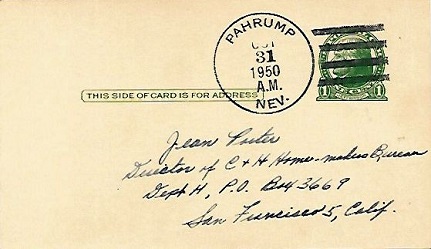 PAHRUMP
OCT
31
1950
A.M.
NEV.
THIS SIDE OF CARD IS FOR ADDRESS
1 1
Jean Porter
Director of C & H Home-makers Bureau
Dept H, P.O. Box 3669
San Francisco 5, Calif.